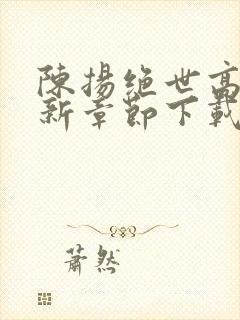 陳揚絕世高
新章節下載
蕭然